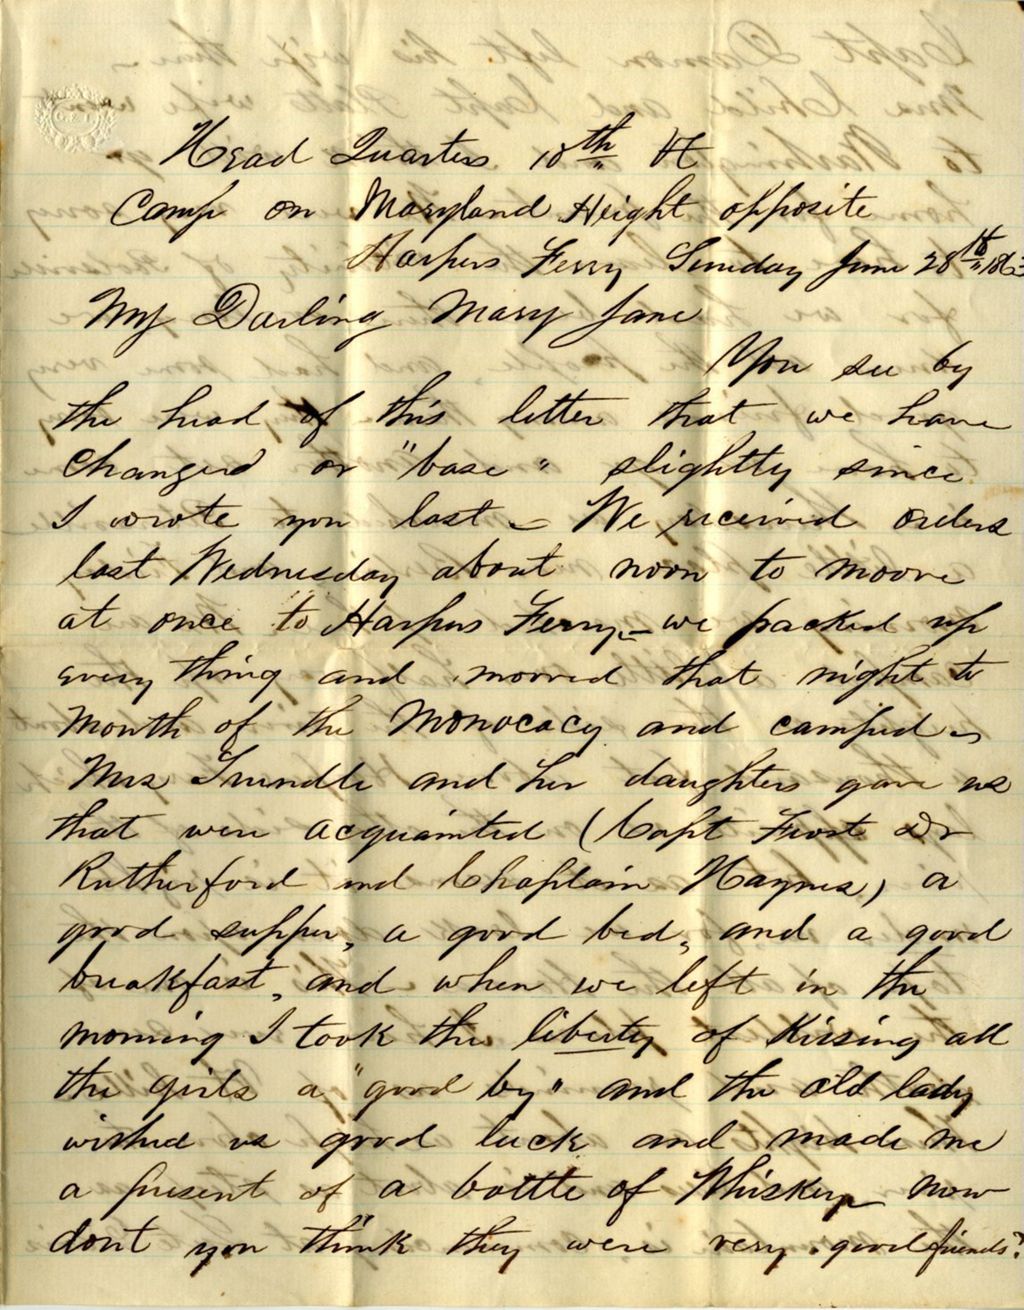 Head Quarters 10th Vt
Camp on Maryland Height opposite
Harpers Ferry Sunday June 28th 1863
My Darling Mary Jane
You see by
the head of this letter that we have
changed or "base" slightly since
I wrote you last – We received orders
last Wednesday about noon to moove
at once to Harpers Ferry – we packed up
every thing and mooved that night to
Mouth of the Monocacy and camped –
Mrs Trundle and her daughters gave us
that were acquainted (Capt Frost Dr
Rutherford and Chaplain Haynes) a
good supper, a good bed, and a good
breakfast, and when we left in the
morning I took the liberty of Kissing all
the girls a "good by" and the old lady
wished us good luck and made me
a present of a bottle of Whiskey now
dont you think they were very good friends?